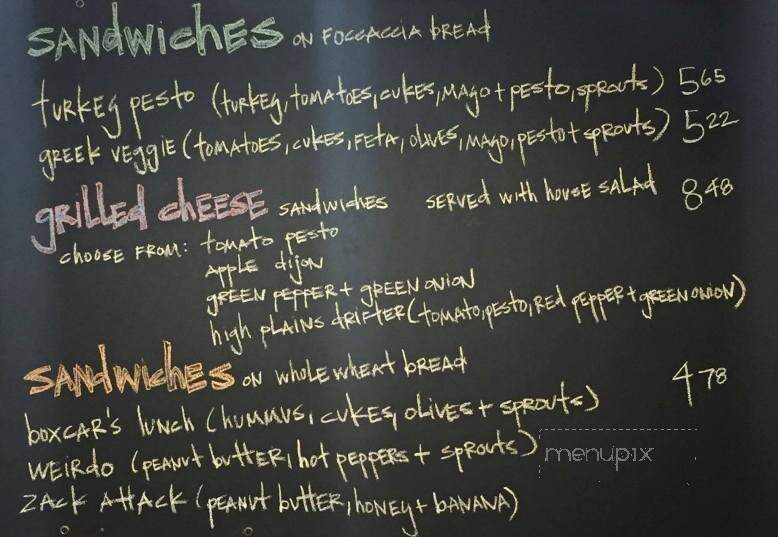 SANDWICHES ON FOCCACCIA BREAD
TURKEY PESTO (TURKEY, TOMATOES, CUKES, MAYO + PESTO, SPROUTS) 5 65
GREEK VEGGIE (TOMATOES, CUKES, FETA, OLIVES, MAYO, PESTO + SPROUTS) 5 22
GRILLED CHEESE SANDWICHES SERVED WITH HOUSE SALAD 8 48
CHOOSE FROM: TOMATO PESTO
APPLE DIJON
GREEN PEPPER + GREEN ONION
HIGH PLAINS DRIFTER (TOMATO, PESTO, RED PEPPER + GREEN ONION)
SANDWICHES ON WHOLE WHEAT BREAD 4 78
BOXCAR'S LUNCH (HUMMUS, CUKES, OLIVES + SPROUTS)
WEIRDO (PEANUT BUTTER, HOT PEPPERS + SPROUTS)
menupix
ZACK ATTACK (PEANUT BUTTER, HONEY + BANANA)